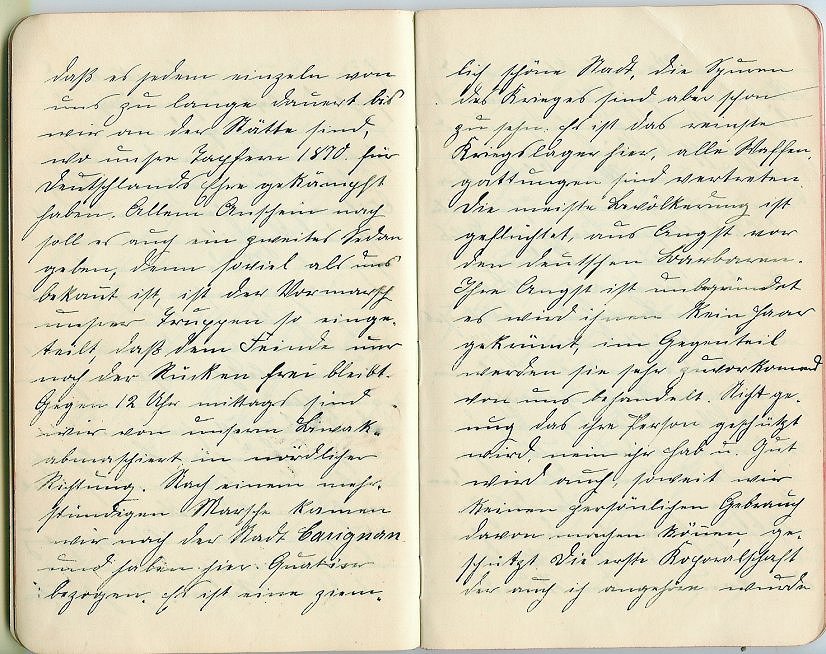 daß es jedem einzeln von
uns zu lange dauert bis
wir an der Stätte sind,
wo unsre Tapfern 1870. für
Deutschlands Ehre gekämpft
haben. Allem Anschein nach
soll es auch ein zweites Sedan
geben, denn soviel als uns
bekant ist, ist der Vormarsch
unsrer Truppen so einge-
teilt, daß dem Feinde nur
noch der Rücken frei bleibt.
Gegen 12 Uhr mittags sind
wir von unserm Biwak-
abmaschiert in nördlicher
Richtung. Nach einem mehr-
stündigen Marsche kamen
wir nach der Stadt Carignan
und haben hier Quatier
bezogen. Es ist eine ziem-
lich schöne Stadt, die Spuren
des Krieges sind aber schon
zu sehn. Es ist das reinste
Kriegslager hier, alle Waffen-
gattungen sind vertreten.
Die meiste Bevölkerung ist
geflüchtet, aus Angst vor
den deutschen Barbaren.
Ihre Angst ist unbegründet
es wird ihnen kein Haar
gekrümt, im Gegenteil
werden sie sehr zuvorkomend
von uns behandelt. Nicht ge-
nug das ihre Person geschützt
wird, nein ihr Hab u. Gut
wird auch, soweit wir
keinen persönlichen Gebrauch
davon machen könen, ge-
schützt. Die erste Koporalschaft
der auch ich angehöre wurde